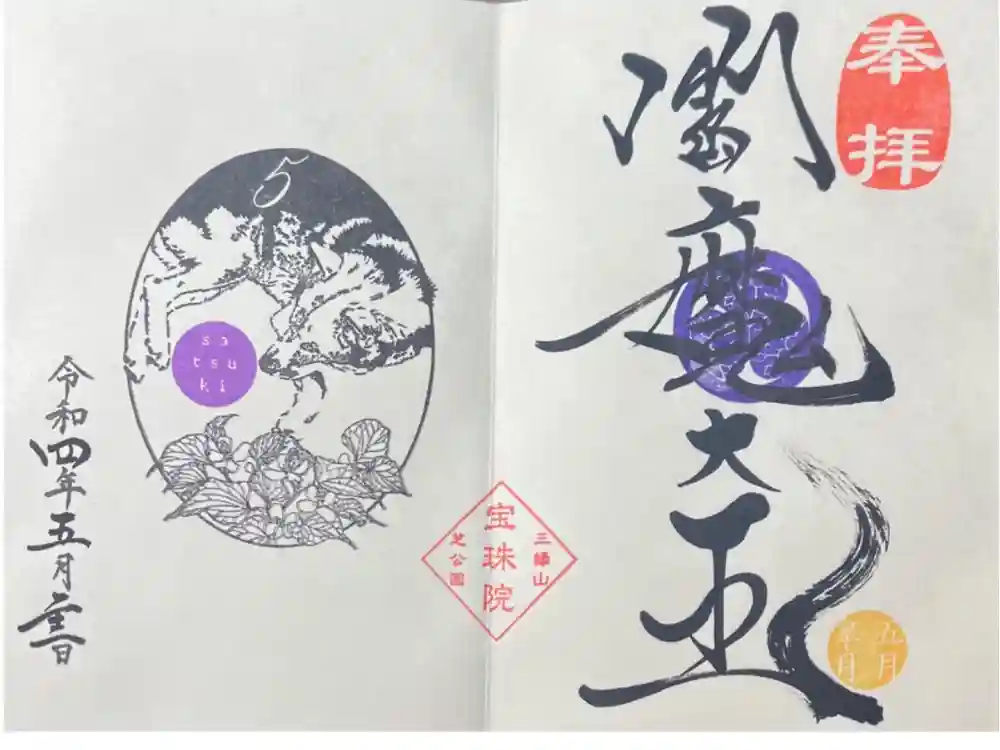 奉拝
閻魔大王
五月
皐月
三縁山
宝珠院
芝公園
5
sa
tsu
ki
令和四年五月日